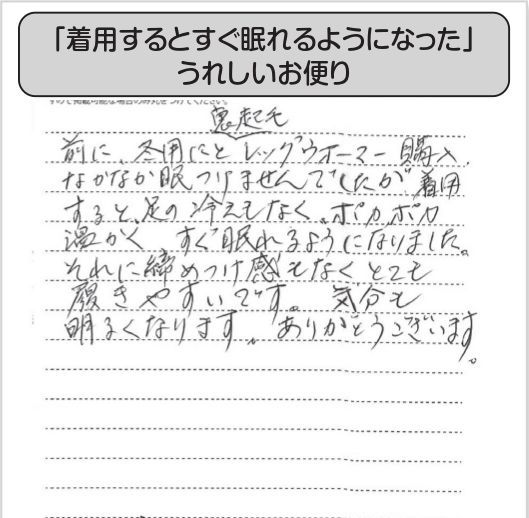 「着用するとすぐ眠れるようになった」
うれしいお便り
裏起毛
前に、冬用にとレッグウオーマー購入、
なかなか眠つけませんでしたが着用
すると、足の冷えもなく、ポカポカ
温かく すぐ眠れるようになりました。
それに締めつけ感もなくとても
履きやすいです。 気分も
明るくなります。 ありがとうございます。